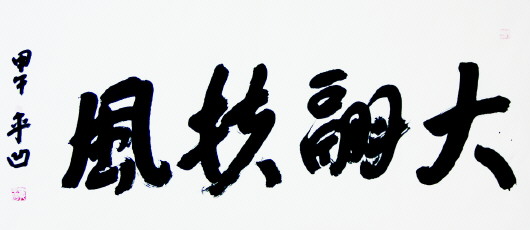 大翮扶風
甲午 平凹